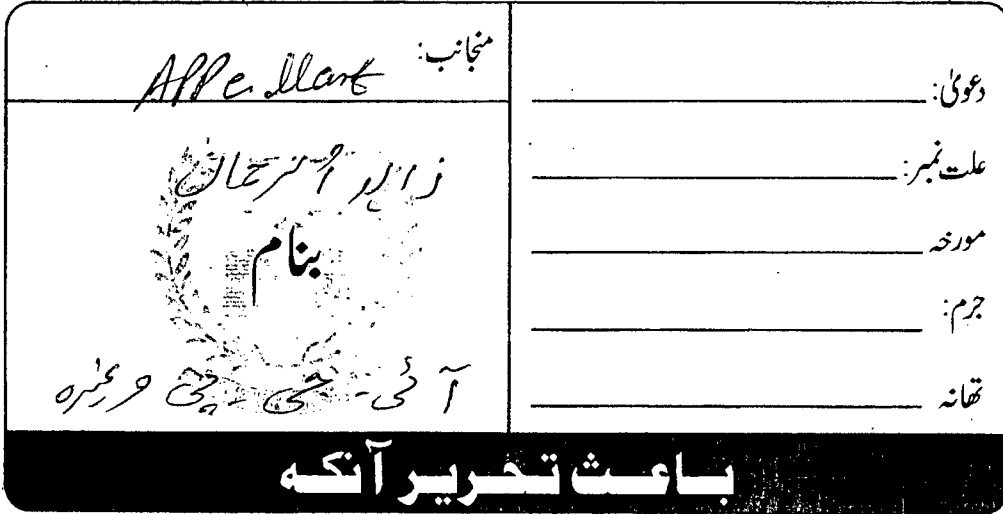 دعویٰ:
علت نمبر:
مورخہ
جرم:
تھانہ
منجانب:
Appellant
الرحمان
بنام
آئی۔ جی۔ پی وغیرہ
باعث تحریر آنکہ